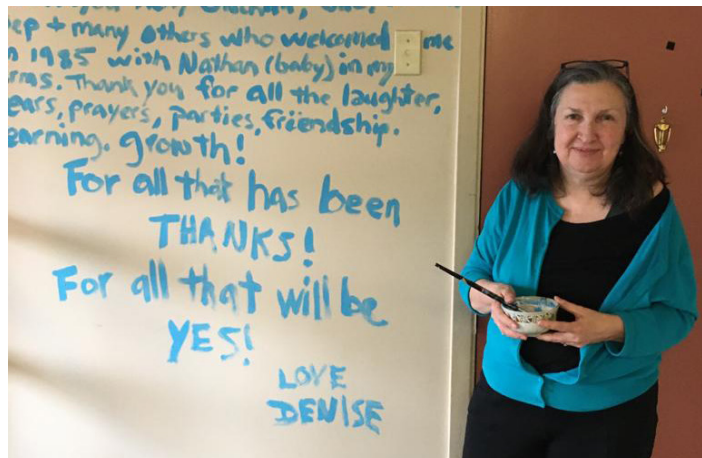 + many others who welcomed me
1985 with Nathan (baby) in my
rms. Thank you for all the laughter,
ears, prayers, parties, friendship.
earning. growth!
For all that has been
THANKS!
For all that will be
YES!
LOVE
DENISE